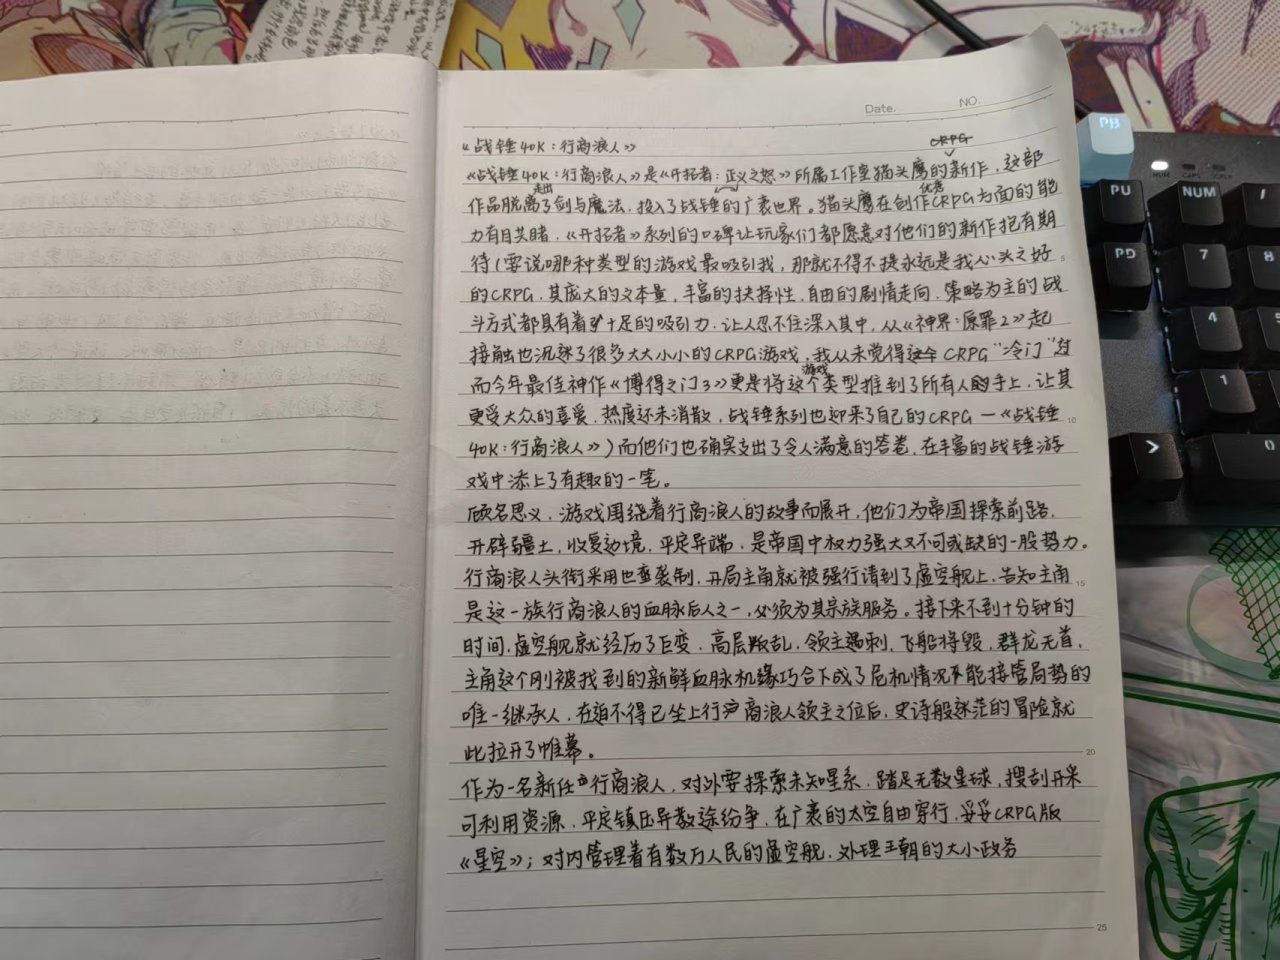 Date.
NO.
《战锤40K：行商浪人》
CRPG
《战锤40K：行商浪人》是《开拓者：正义之怒》所属工作室猫头鹰的新作，这部
走出
优秀
作品脱离了剑与魔法，投入了战锤的广袤世界。猫头鹰在创作CRPG方面的能
力有目共睹，《开拓者》系列的口碑让玩家们都愿意对他们的新作抱有期
待（要说哪种类型的游戏最吸引我，那就不得不提永远是我心头之好
5
的CRPG，其庞大的文本量，丰富的抉择性，自由的剧情走向，策略为主的战
斗方式都具有着十足的吸引力，让人忍不住深入其中，从《神界：原罪2》起
接触也沉迷了很多大大小小的CRPG游戏，我从未觉得这个CRPG“冷门”
游戏
而今年最佳神作《博得之门3》更是将这个类型推到了所有人的手上，让其
更受大众的喜爱，热度还未消散，战锤系列也迎来了自己的CRPG—《战锤
10
40K：行商浪人》）而他们也确实支出了令人满意的答卷，在丰富的战锤游
戏中添上了有趣的一笔。
顾名思义，游戏围绕着行商浪人的故事而展开，他们为帝国探索前路，
开辟疆土，收复边境，平定异端，是帝国中权力强大又不可或缺的一股势力。
行商浪人头衔采用世袭制，开局主角就被强行请到了虚空舰上，告知主角
15
是这一族行商浪人的血脉后人之一，必须为其宗族服务。接下来不到十分钟的
时间，虚空舰就经历了巨变，高层叛乱，领主遇刺，飞船将毁，群龙无首，
主角这个刚被找到的新鲜血脉机缘巧合下成了危机情况下能接管局势的
唯一继承人，在迫不得已坐上行商浪人领主之位后，史诗般迷茫的冒险就
此拉开了帷幕。
20
作为一名新任行商浪人，对外要探索未知星系，踏足无数星球，搜刮开采
可利用资源，平定镇压异教徒纷争，在广袤的太空自由穿行，妥妥CRPG版
《星空》；对内管理着有数万人民的虚空舰，处理王朝的大小政务
25
PB
NUM
CAPS
PU
NUM
/
PD
7
8
4
5
1
>
0